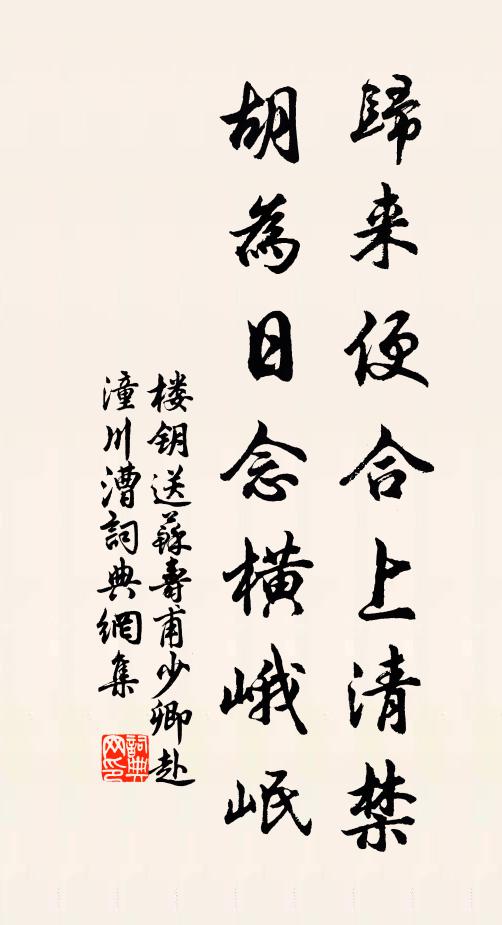 歸来便合上清禁
胡為日念橫峨岷
楼钥送蘇壽甫少卿赴
潼川漕詞典網集
詞典
网印